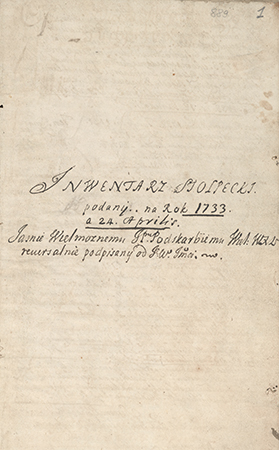 889 1
INWENTARZ STOŁPECKI.
podany.. na Rok 1733.
a 24. Aprilis.
Jasnie Wielmoznemu Jmci Podskarbiemu
rewersalnie podpisany od JWo Jmci.